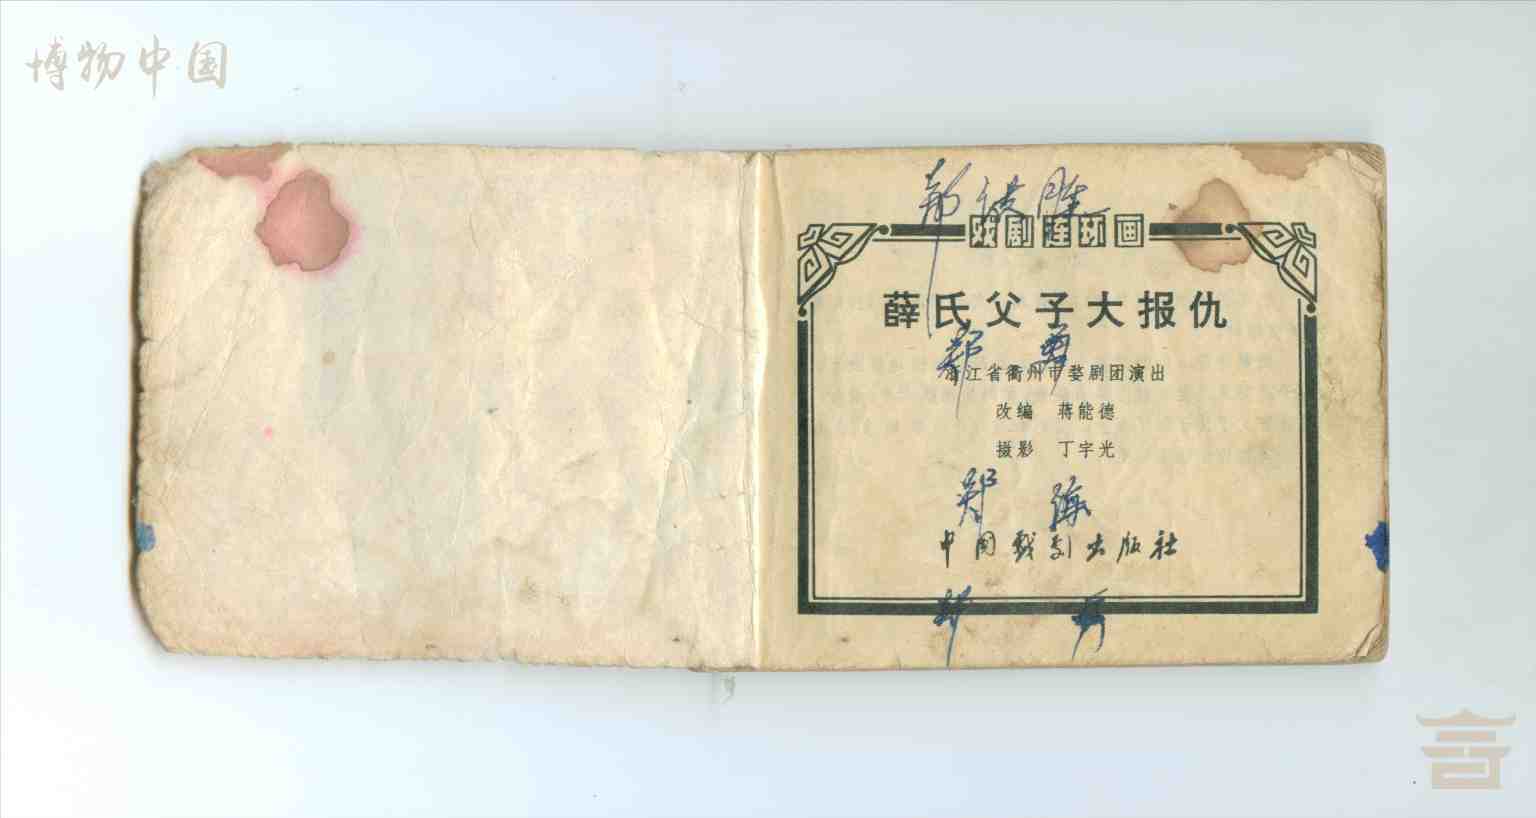 博物中国
戏剧连环画
薛氏父子大报仇
郑勇
浙江省衢州市婺剧团演出
改编 蒋能德
摄影 丁宇光
郑海
中国戏剧出版社